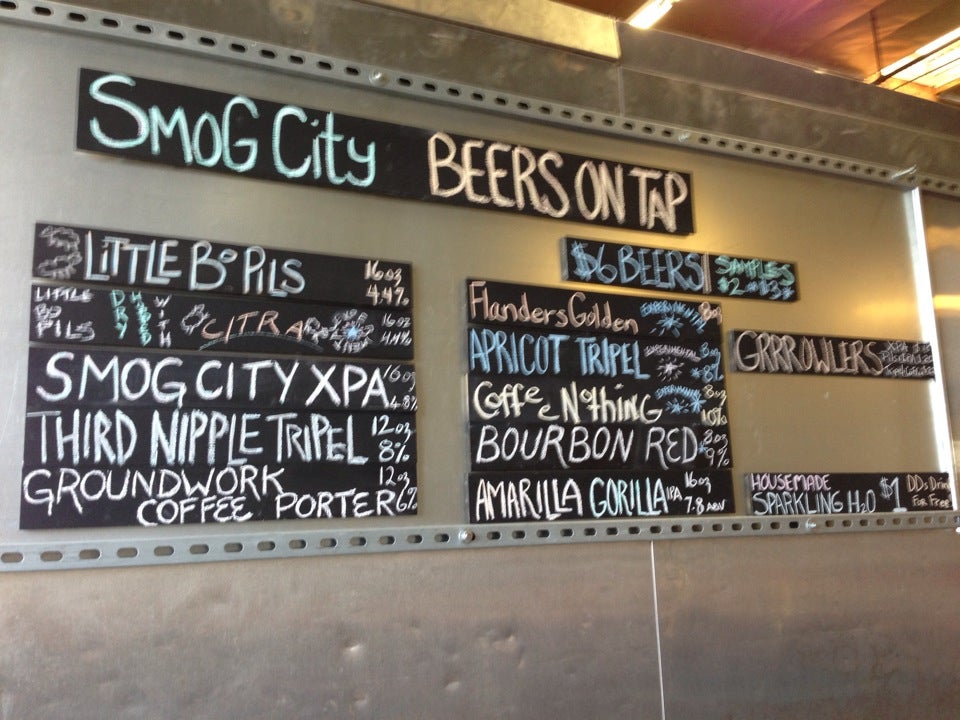 SMOG City BEERS ON TAP
LITTLE Bo PILS 16oz 4.4%
LITTLE BO PILS DRY HOPPED WITH CITRA 16oz 4.4%
SMOG CITY XPA 16oz 4.8%
THIRD NIPPLE TRIPEL 12oz 8%
GROUNDWORK COFFEE PORTER 12oz 6%
$6 BEERS SAMPLES $2 OR $3
Flanders Golden EXPERIMENTAL 8oz
APRICOT TRIPEL EXPERIMENTAL 8oz 8%
Coffee Nothing EXPERIMENTAL 8oz 10%
BOURBON RED 8oz 9%
AMARILLA GORILLA IPA 16oz 7.8 ABV
GRRROWLERS XPA
HOUSEMADE
SPARKLING H2O $1 DDs Drink For Free